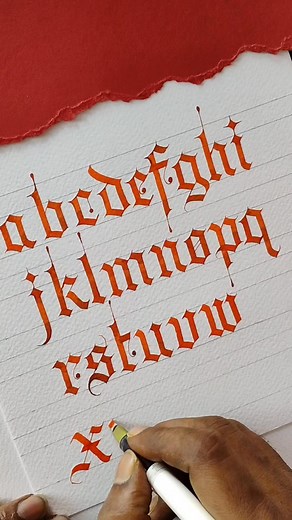 abcdefghi
jklmnopq
rstuvw
x